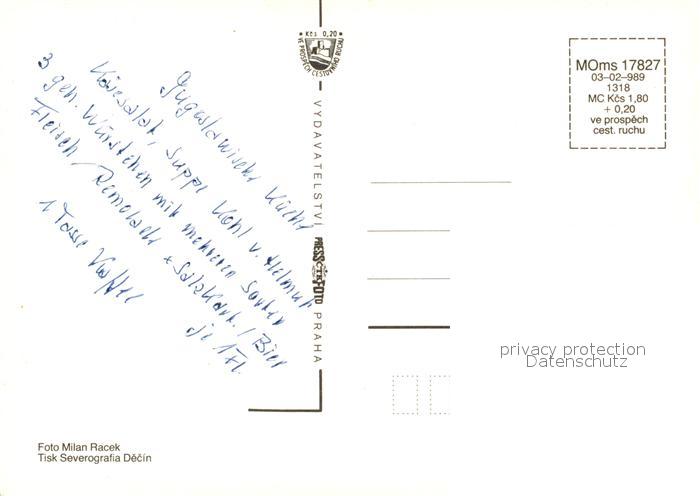 Jugoslawische Küche
Käsesalat, Suppe Kohl v. Helmut
3 geh. Würstchen mit mehreren Sorten
Fleisch, Remolade + Salzkart. / Bier
1 Tasse Kaffee
je 1 Fl.
Kčs 0,20
VE PROSPĚCH CESTOVNÍHO RUCHU
VYDAVATELSTVÍ PRESSFOTO PRAHA
ČTK
MOms 17827
03-02-989
1318
MC Kčs 1,80
+ 0,20
ve prospěch
cest. ruchu
privacy protection
Datenschutz
Foto Milan Racek
Tisk Severografia Děčín